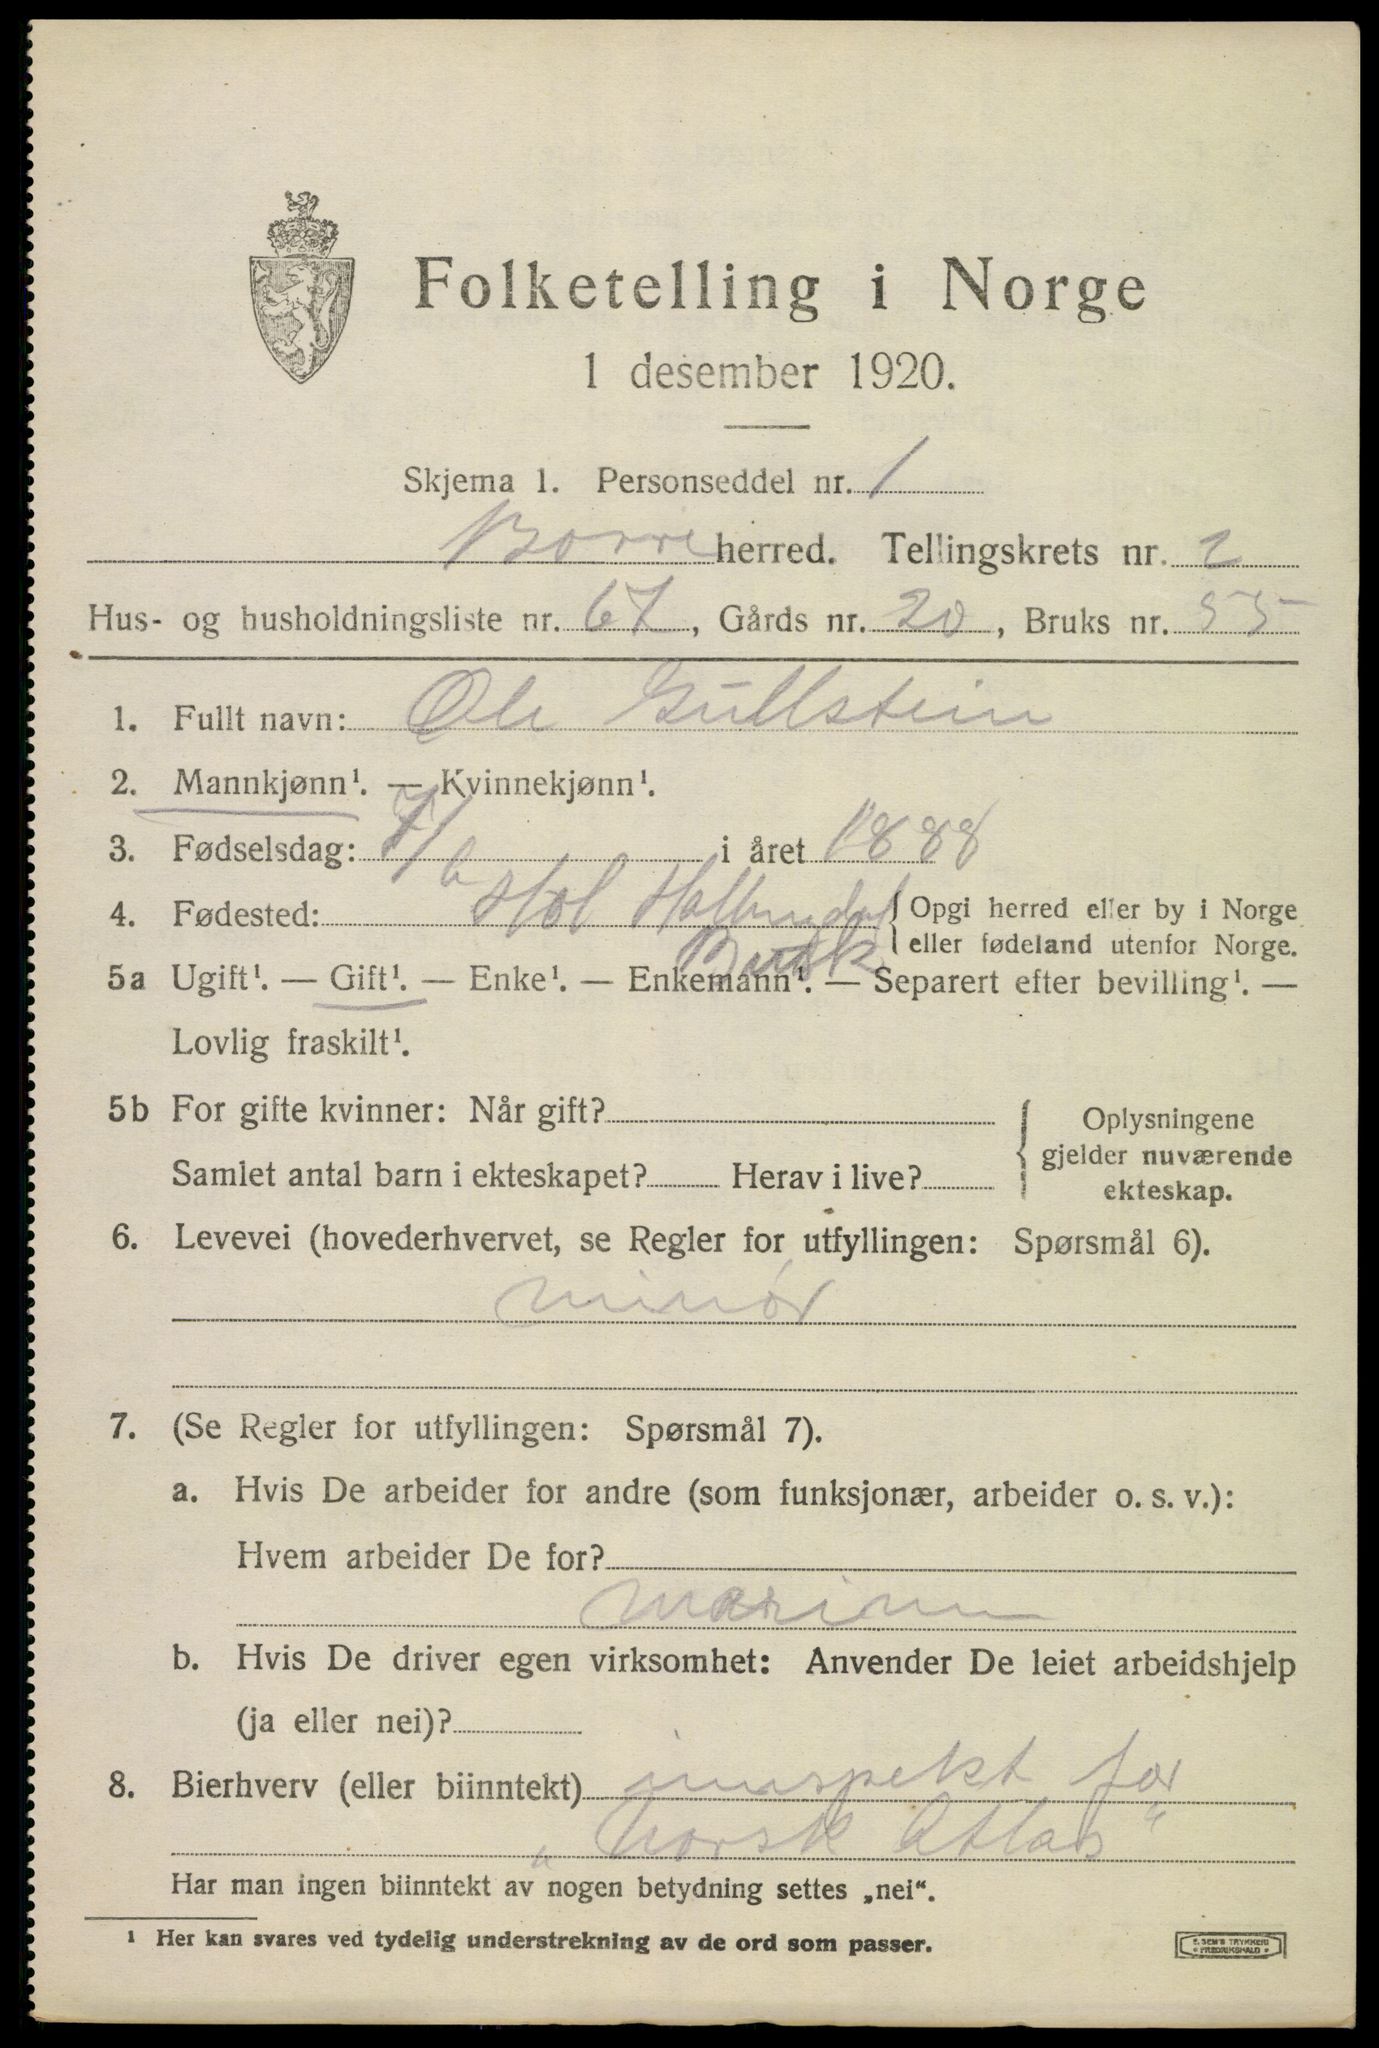 Folketelling i Norge
1 desember 1920.
Skjema 1. Personseddel nr. 1
Borre herred. Tellingskrets nr. 2
Hus- og husholdningsliste nr. 67, Gårds nr. 20, Bruks nr. 55
1. Fullt navn: Ole Gullstein
2. Mannkjønn¹. — Kvinnekjønn¹.
3. Fødselsdag: 7/6 i året 1888
4. Fødested: Hol Hallingdal { Opgi herred eller by i Norge
Busk { eller fødeland utenfor Norge.
5a Ugift¹. — Gift¹. — Enke¹. — Enkemann¹. — Separert efter bevilling¹. —
Lovlig fraskilt¹.
5b For gifte kvinner: Når gift? { Oplysningene
gjelder nuværende
Samlet antal barn i ekteskapet? Herav i live? ekteskap.
6. Levevei (hovederhvervet, se Regler for utfyllingen: Spørsmål 6).
minör
7. (Se Regler for utfyllingen: Spørsmål 7).
a. Hvis De arbeider for andre (som funksjonær, arbeider o. s. v.):
Hvem arbeider De for?
marinen
b. Hvis De driver egen virksomhet: Anvender De leiet arbeidshjelp
(ja eller nei)?
8. Bierhverv (eller biinntekt) innspekt for
„Norsk Atlas"
Har man ingen biinntekt av nogen betydning settes „nei".
¹ Her kan svares ved tydelig understrekning av de ord som passer.
E. SEM'S TRYKKERI
* FREDRIKSHALD *